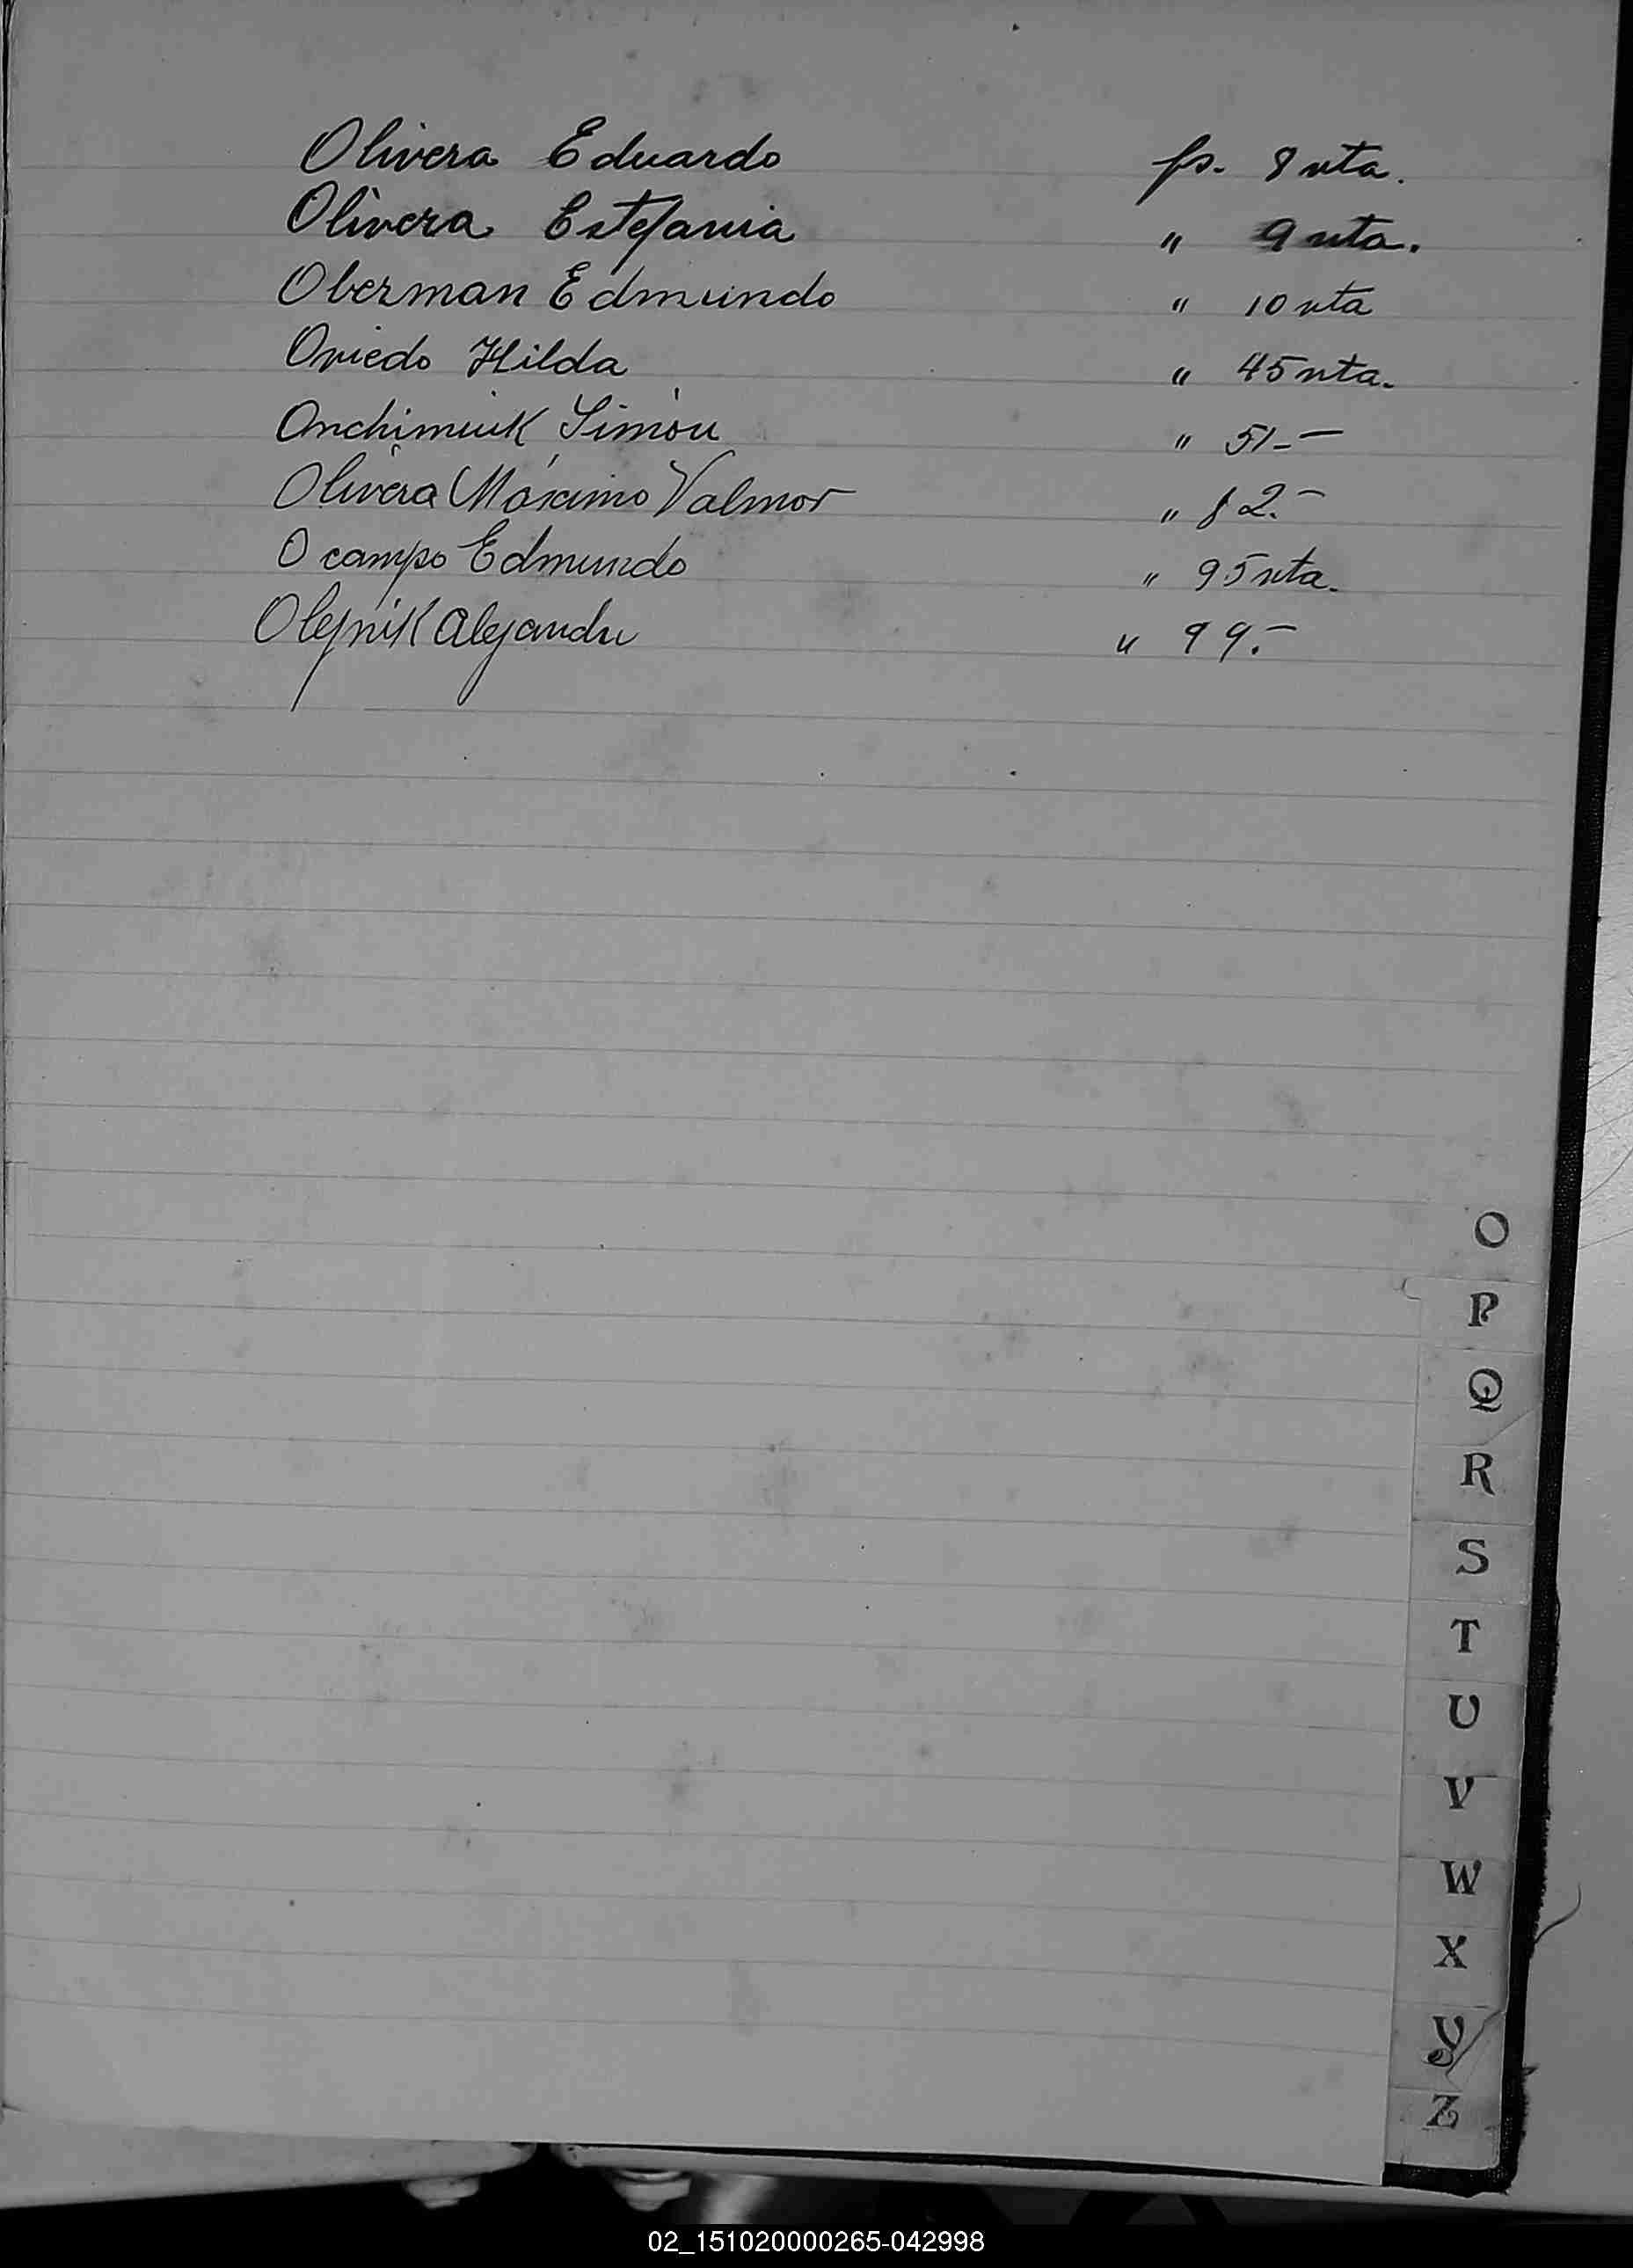 Olivera Eduardo fs. 8 vta.
Olivera Estefania " 9 vta.
Oberman Edmundo " 10 vta
Oviedo Hilda " 45 vta.
Onchimiuk Simón " 51.-
Olivera Máximo Valmor " 82.-
Ocampo Edmundo " 95 vta.
Olejnik Alejandro " 99.-
O
P
Q
R
S
T
U
V
W
X
Y
Z
02_151020000265-042998